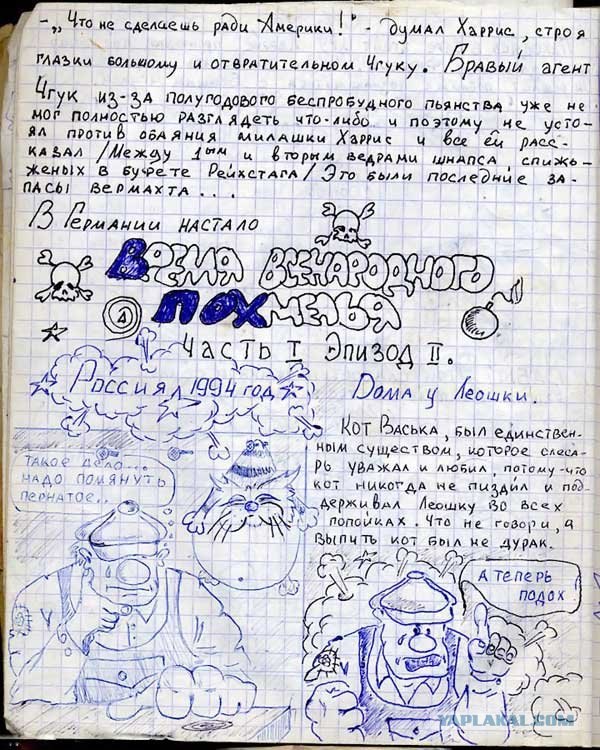 - „Что не сделаешь ради Америки!" - думал Харрис, строя
глазки большому и отвратительном Чгуку. Бравый агент
Чгук из-за полугодового беспробудного пьянства уже не
мог полностью разглядеть что-либо и поэтому не усто-
ял против обаяния милашки Харрис и все ей расс-
казал /Между 1ым и вторым ведрами шнапса, спизь-
женых в буфете Рейхстага/ Это были последние за-
пасы вермахта...
В Германии настало
Время всенародного
похмелья
4
Часть I Эпизод II.
Россия 1994 год
Дома у Леошки.
Кот Васька, был единствен-
ным существом, которое слеса-
рь уважал и любил, потому-что
кот никогда не пиздил и под-
держивал Леошку во всех
попойках. Что не говори, а
выпить кот был не дурак.
Такое дело...
надо помянуть
пернатое..
А теперь
подох
YAPLAKAL.COM